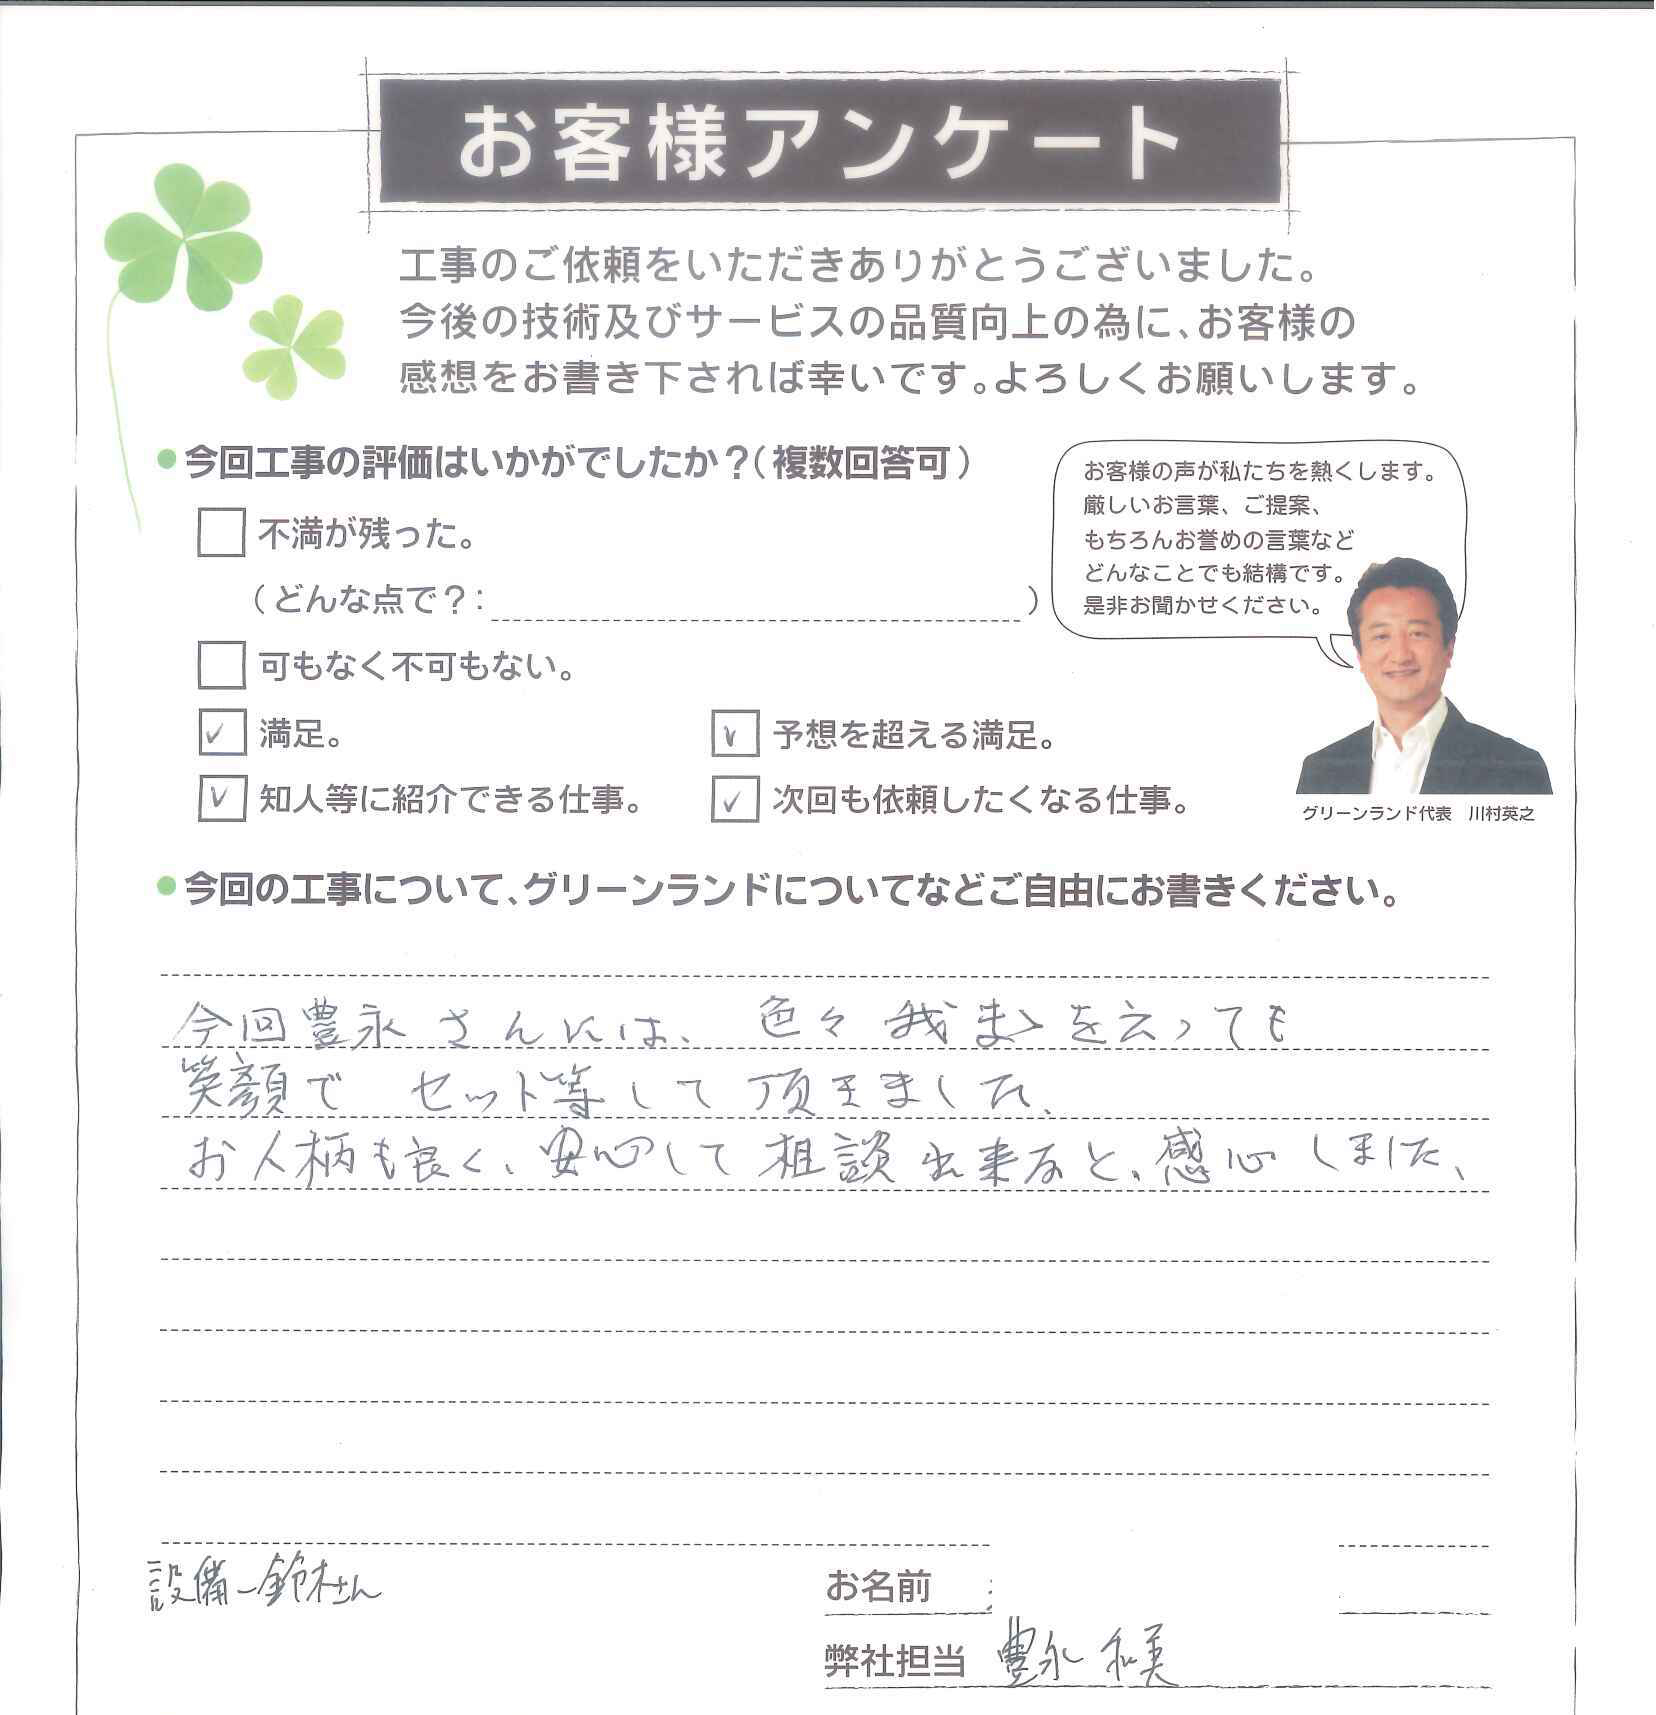 お客様アンケート
工事のご依頼をいただきありがとうございました。
今後の技術及びサービスの品質向上の為に、お客様の
感想をお書き下されば幸いです。よろしくお願いします。
今回工事の評価はいかがでしたか？（複数回答可）
不満が残った。
（どんな点で？：　）
可もなく不可もない。
満足。
予想を超える満足。
知人等に紹介できる仕事。
次回も依頼したくなる仕事。
お客様の声が私たちを熱くします。
厳しいお言葉、ご提案、
もちろんお誉めの言葉など
どんなことでも結構です。
是非お聞かせください。
グリーンランド代表　川村英之
今回の工事について、グリーンランドについてなどご自由にお書きください。
今回豊永さんには、色々我まゝを云っても
笑顔でセット等して頂きました、
お人柄も良く、安心して相談出来ると、感心しました、
設備ー鈴木さん
お名前
弊社担当 豊永 和美